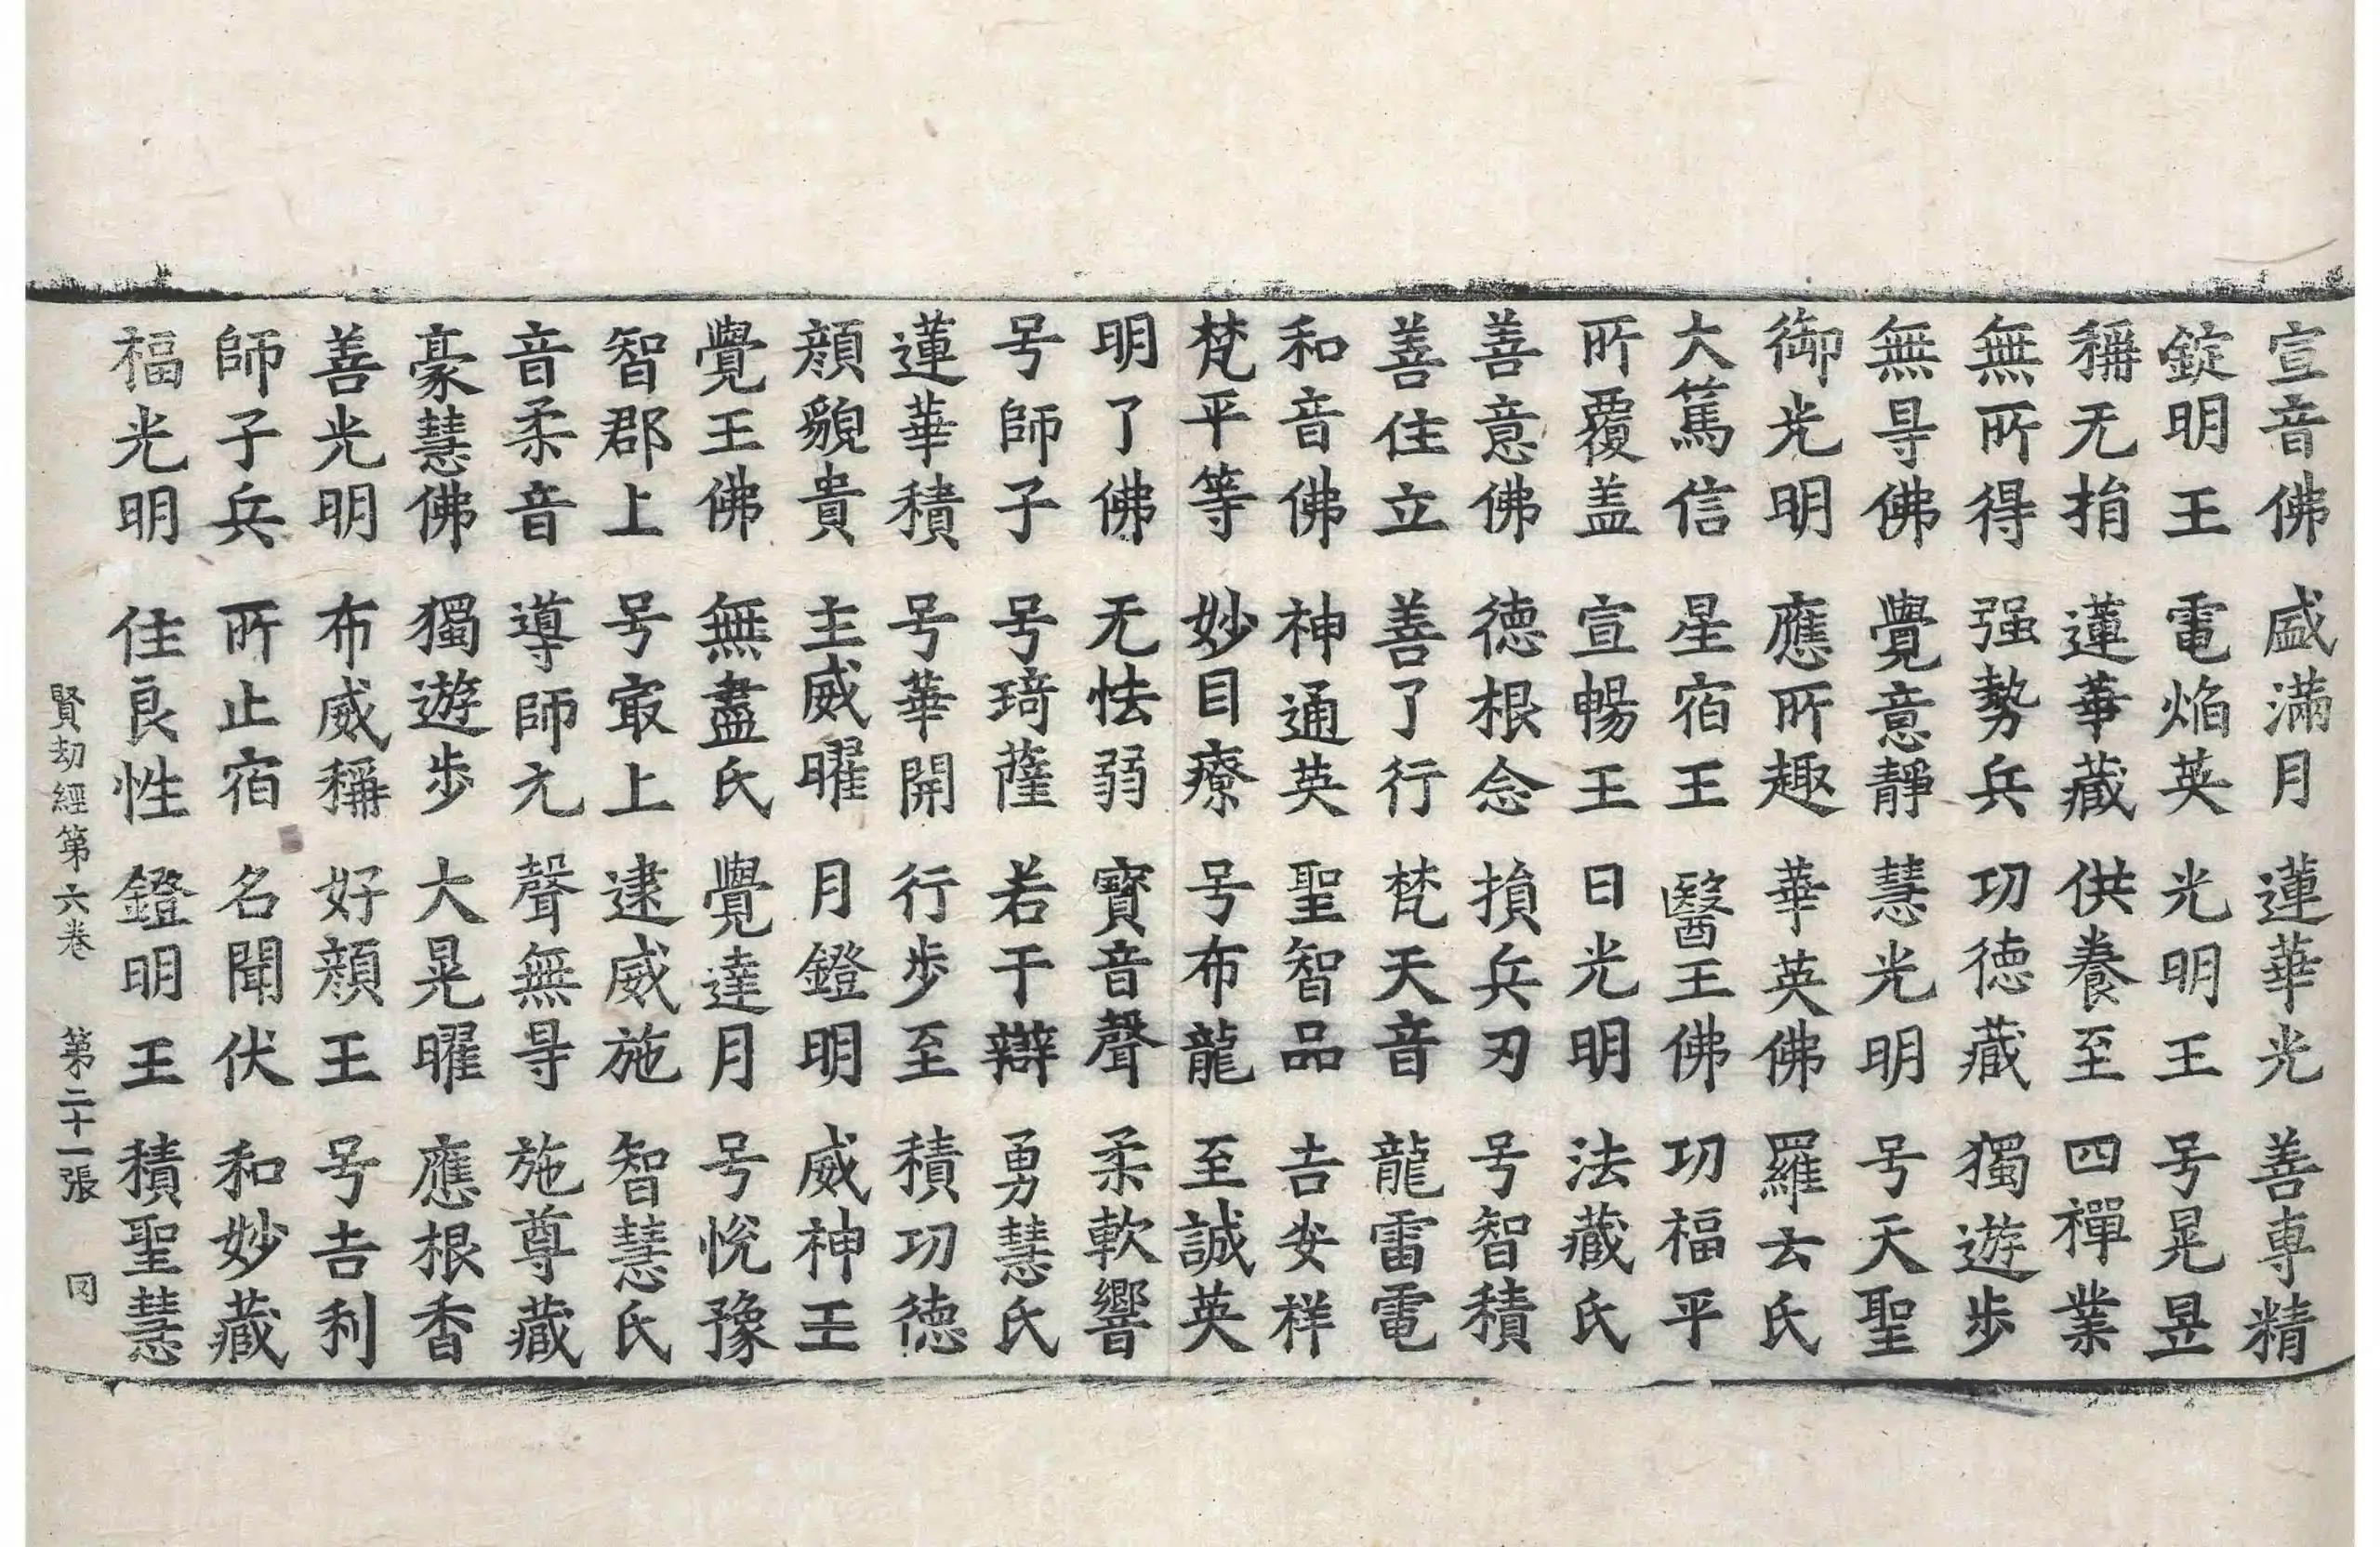 宣音佛 盛滿月 蓮華光 善專精
錠明王 電焰英 光明王 号晃昱
稱无捐 蓮華藏 供養至 四禪業
無所得 强勢兵 功德藏 獨遊步
無㝵佛 覺意靜 慧光明 号天聖
御光明 應所趣 華英佛 羅云氏
大篤信 星宿王 醫王佛 功福平
所覆盖 宣暢王 日光明 法藏氏
善意佛 德根念 損兵刃 号智積
善住立 善了行 梵天音 龍雷電
和音佛 神通英 聖智品 吉安祥
梵平等 妙目療 号布龍 至誠英
明了佛 无怯弱 寶音聲 柔軟響
号師子 号琦薩 若干辯 勇慧氏
蓮華積 号華開 行步至 積功德
顏貌貴 主威曜 月鐙明 威神王
覺王佛 無盡氏 覺達月 号悅豫
智郡上 号㝡上 逮威施 智慧氏
音柔音 導師元 聲無㝵 施尊藏
豪慧佛 獨遊步 大晃曜 應根香
善光明 布威稱 好顏王 号吉利
師子兵 所止宿 名聞伏 和妙藏
福光明 住良性 鐙明王 積聖慧
賢劫經第六卷 第二十一張 同